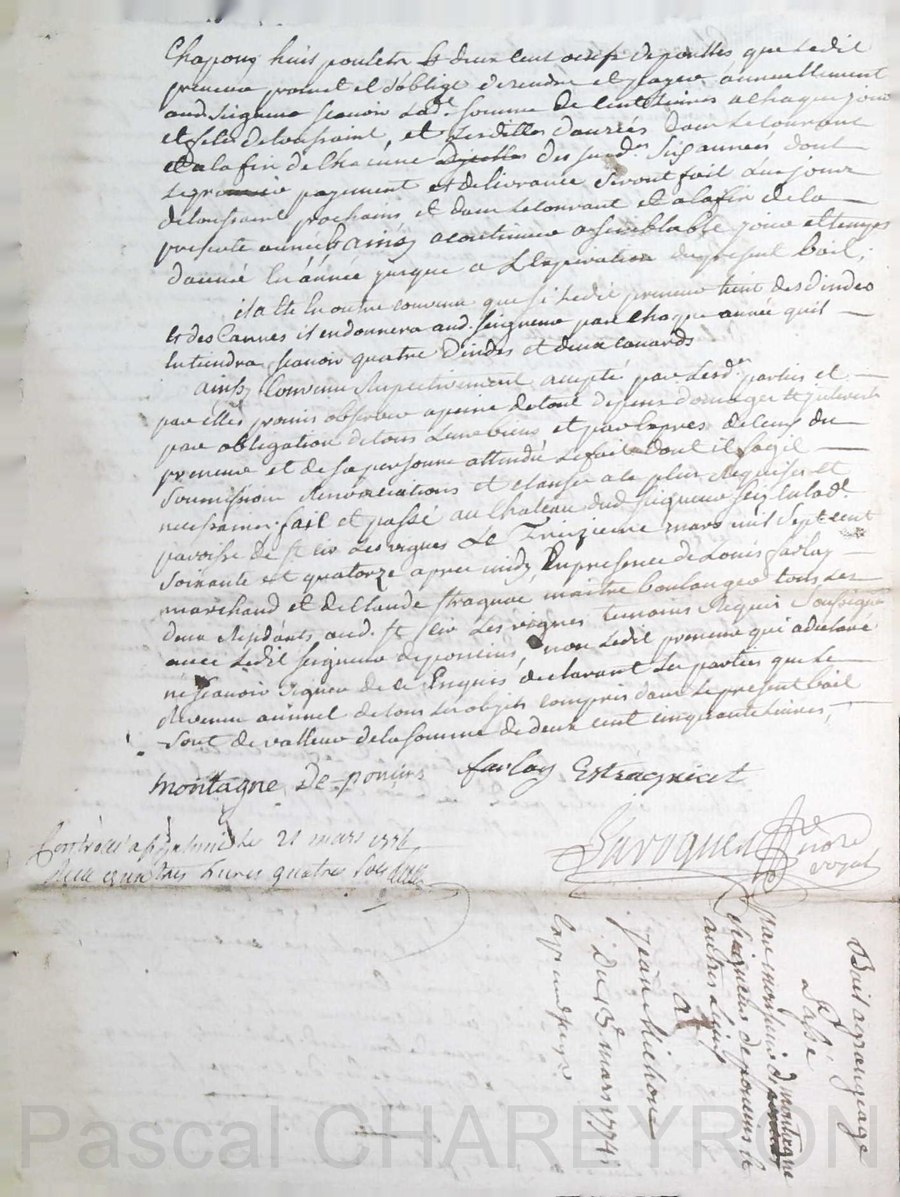 Chapons huit poulets & deux cent œufs de poulles que ledit
preneur promet et s'oblige de rendre et payer annuellement
aud. Seigneur scavoir lad.e somme de cent livres a chaque jour
et feste de toussaint, et lesdittes danrées dans le courant
et a la fin de chacune des sud.es six années dont
le premier payement et delivrance seront fait au jour
de toussaint prochain et dans le courant et a la fin de la
presente année & ainsy a continuer a semblable jour et temps
d'année en année jusque a l'expiration du present bail;
il a été en outre convenu que si ledit preneur tient des dindes
et des cannes il en donnera aud. Seigneur par chaque année qu'il
en tiendra scavoir quatre dindes et deux canards
ainsy convenu respectivement accepté par lesd. parties et
par elles promis observer a peine de tous depens domages & interests
par obligation de tous leurs biens et par exprès de ceux du
preneur et de sa personne attendu le fait dont il s'agit
soumissions renonciations et clauses a le plus requises et
necessaires. fait et passé au chateau dud Seigneur scis en lad.
paroisse de st cir les vignes le treizieme mars mil sept cent
soixante et quatorze après midy, En presence de Louis farlay
marchand et de Claude maitre boulanger tous les
deux residants aud. st cir les vignes temoins requis soussignés
avec ledit Seigneur de poncins, non ledit preneur qui a declaré
ne scavoir signer de ce Enquis, declarant les parties que le
revenu annuel de tous les objets compris dans le present bail
sont de valleur de la somme de deux cent cinquante livres,
montagne De poncins farlay Estragnat
Controlé a le 21 mars 1774
Reçu trois Livres quatre sols
nore
royal
Bail a grangeage
Passé
par monsieur de montagne
Seigneur de poncins &
autres lieux
A
Jean Michon
du 13e mars 1774